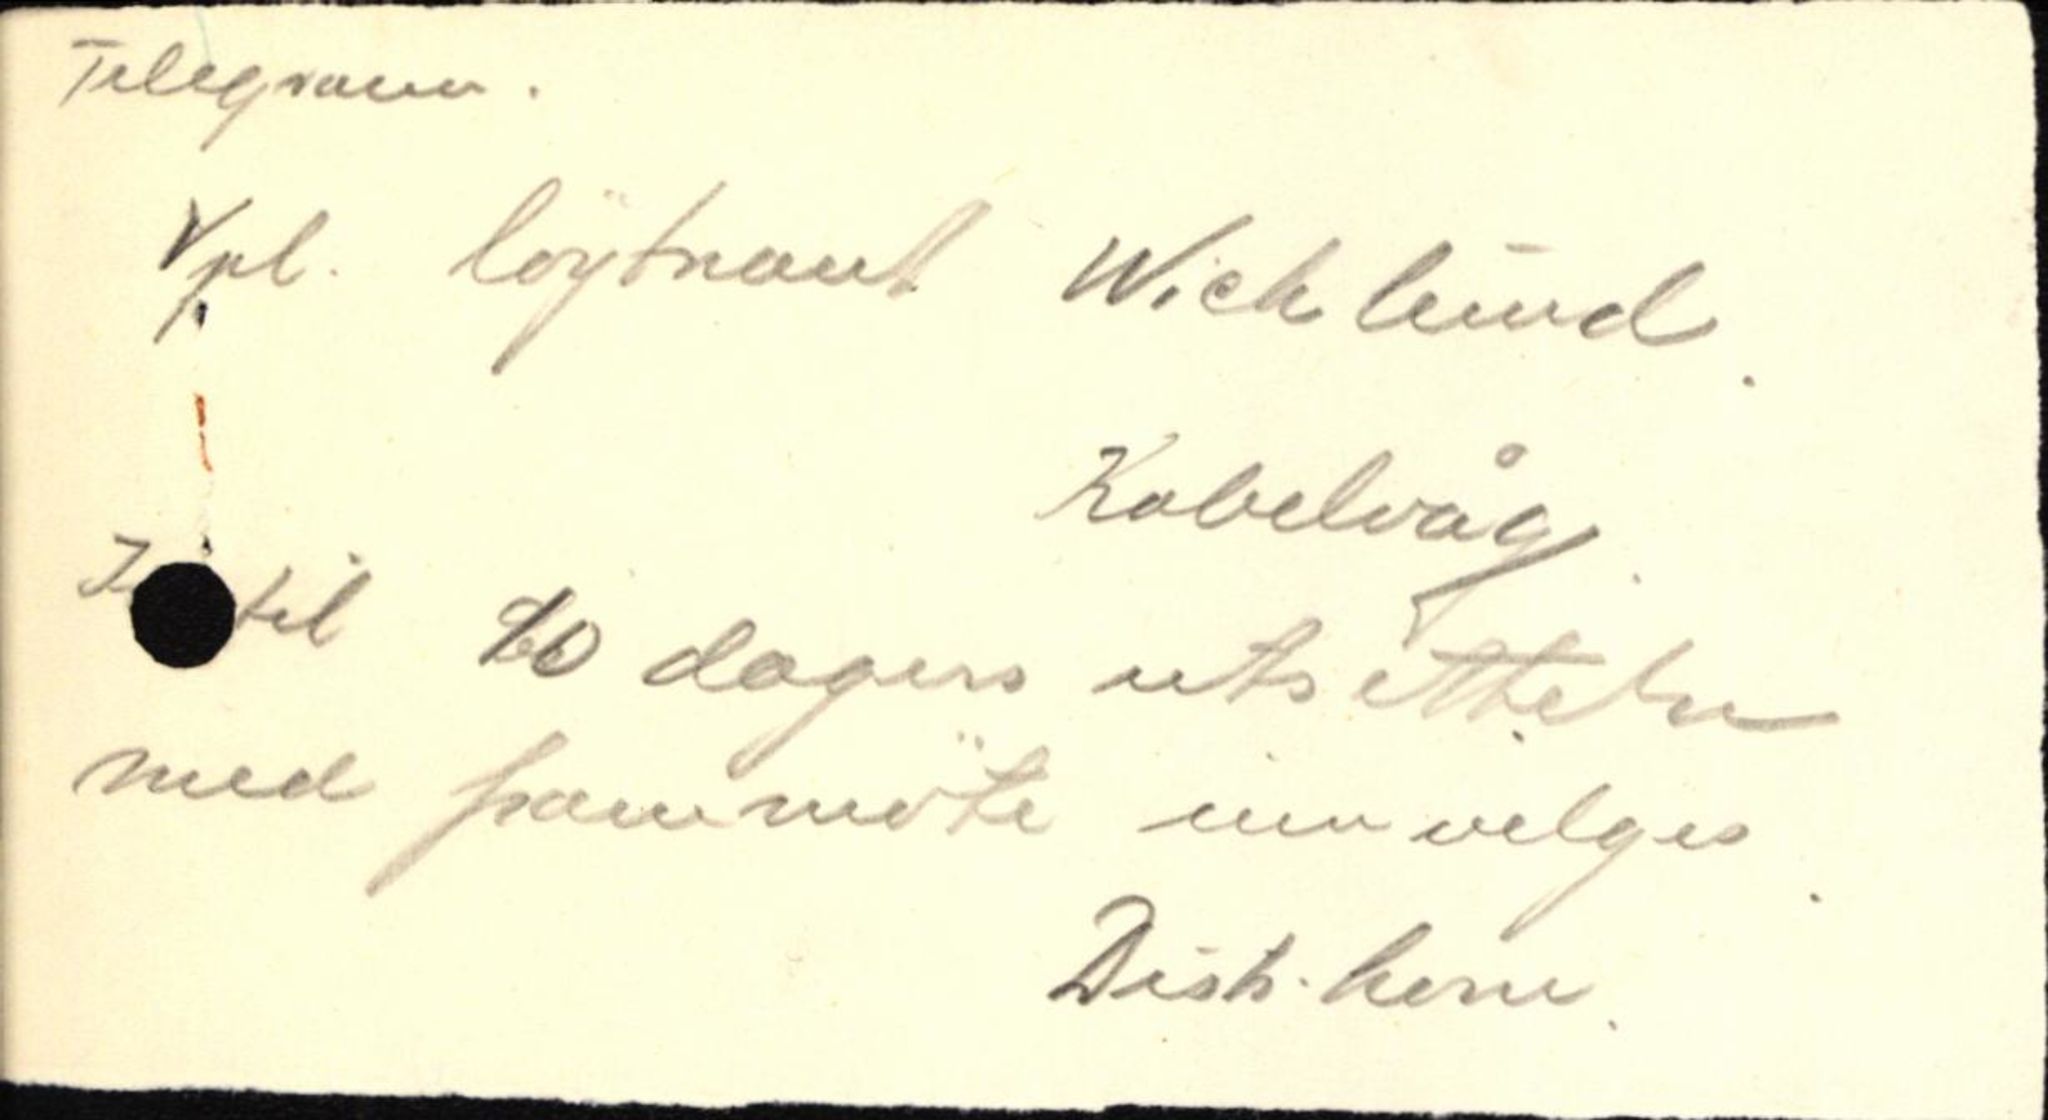 Telegram.
Vpl. löytnant Wicklund.
Kabelvåg.
til 10 dagers utsettelse
med frammöte innvelges.
Distr. kom.